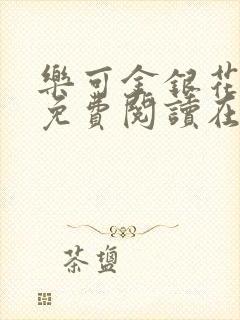 樂可金銀花
免費閱讀在
茶鹽